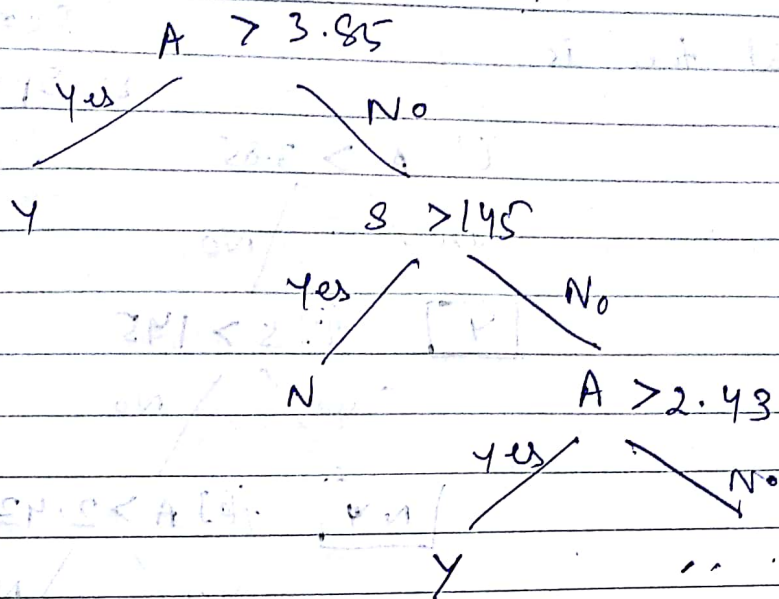 A > 3.85
Yes No
Y S > 145
Yes No
N A > 2.43
yes No
Y ...